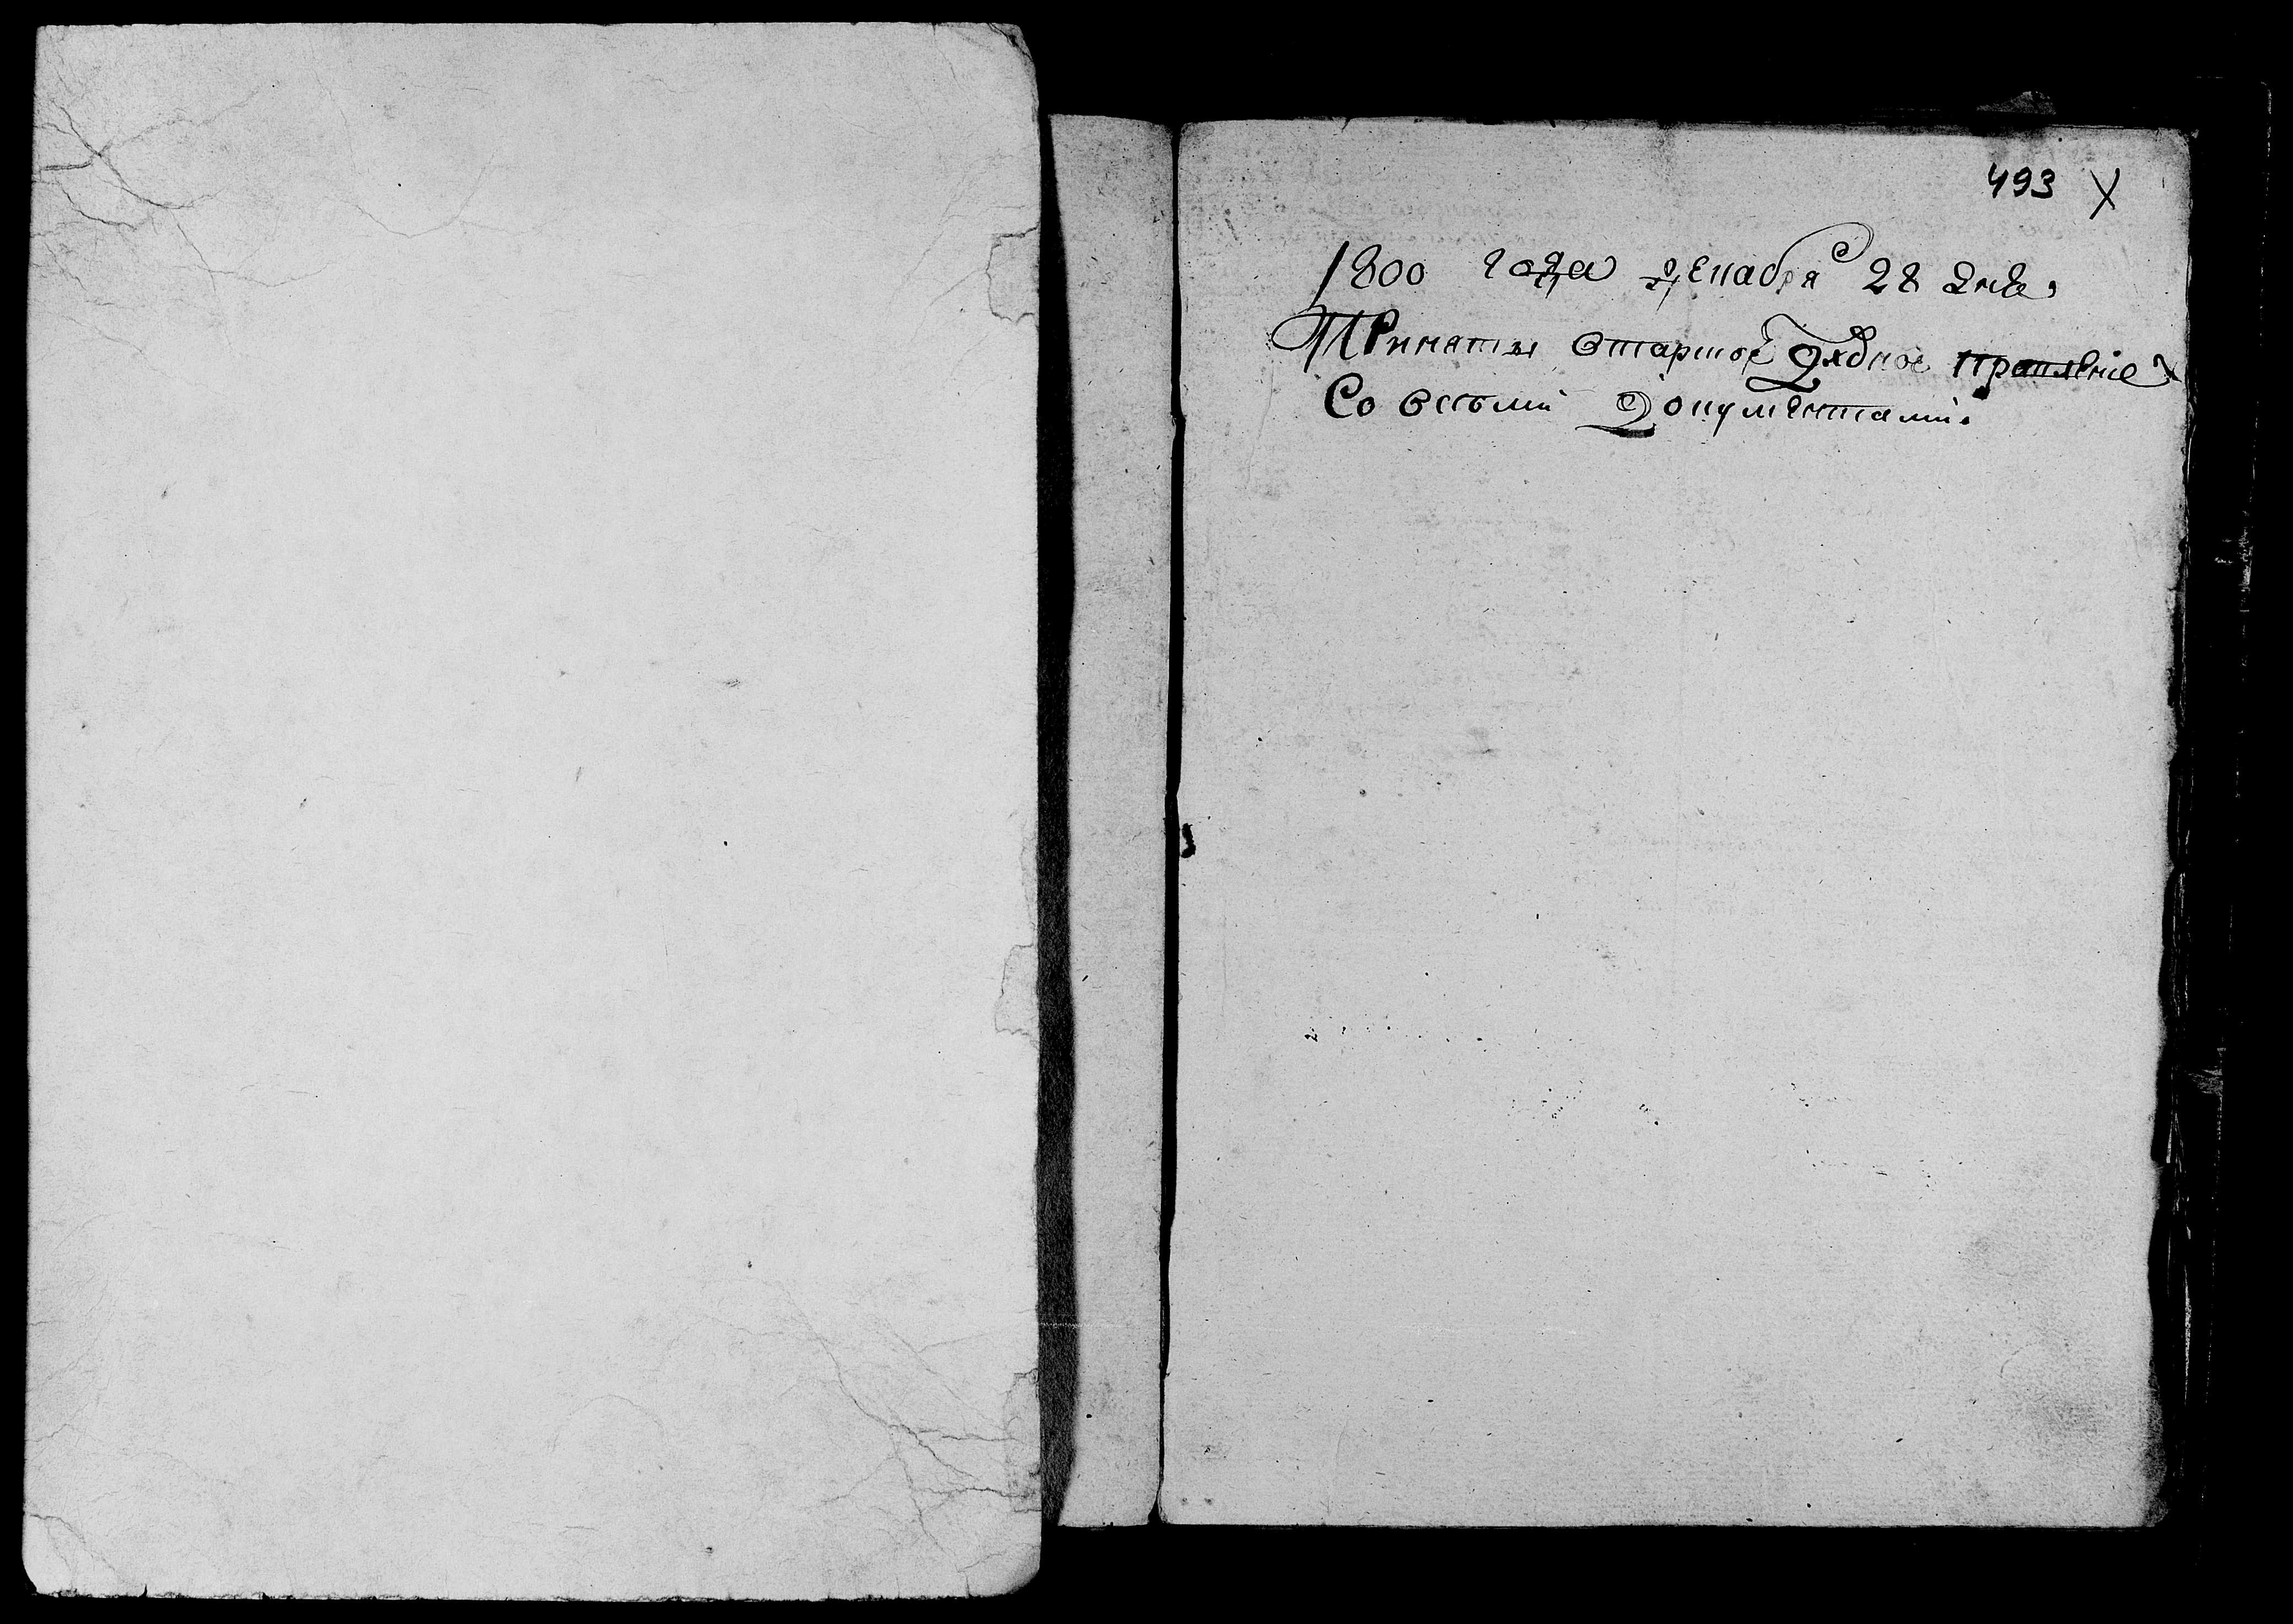 493 X
1800 года декабря 28 дня,
Приняты в старшое рядное правлние
Со всеми Документами.